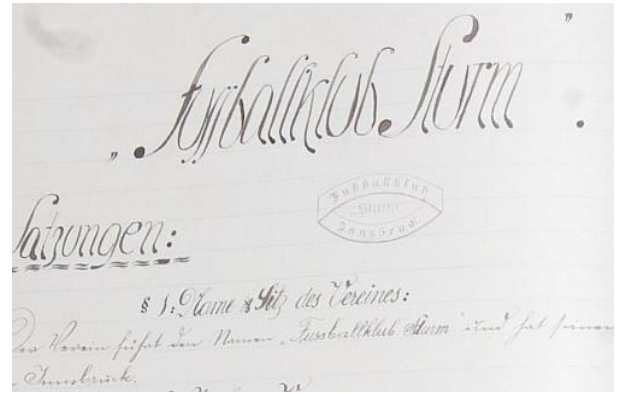 „Fussballklub Sturm”.
Fußballklub
„Sturm“
Innsbruck
Satzungen:
§ 1: Name & Sitz des Vereines:
Der Verein führt den Namen „Fussballklub Sturm“ und hat seinen
Innsbruck.